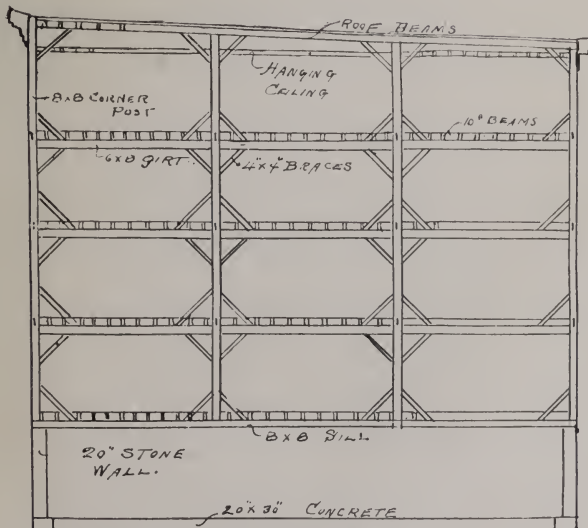 ROOF BEAMS
HANGING
CEILING
8x8 CORNER
POST
10" BEAMS
6x8 GIRT.
4"x4" BRACES
8x8 SILL
20" STONE
WALL.
20"x30" CONCRETE